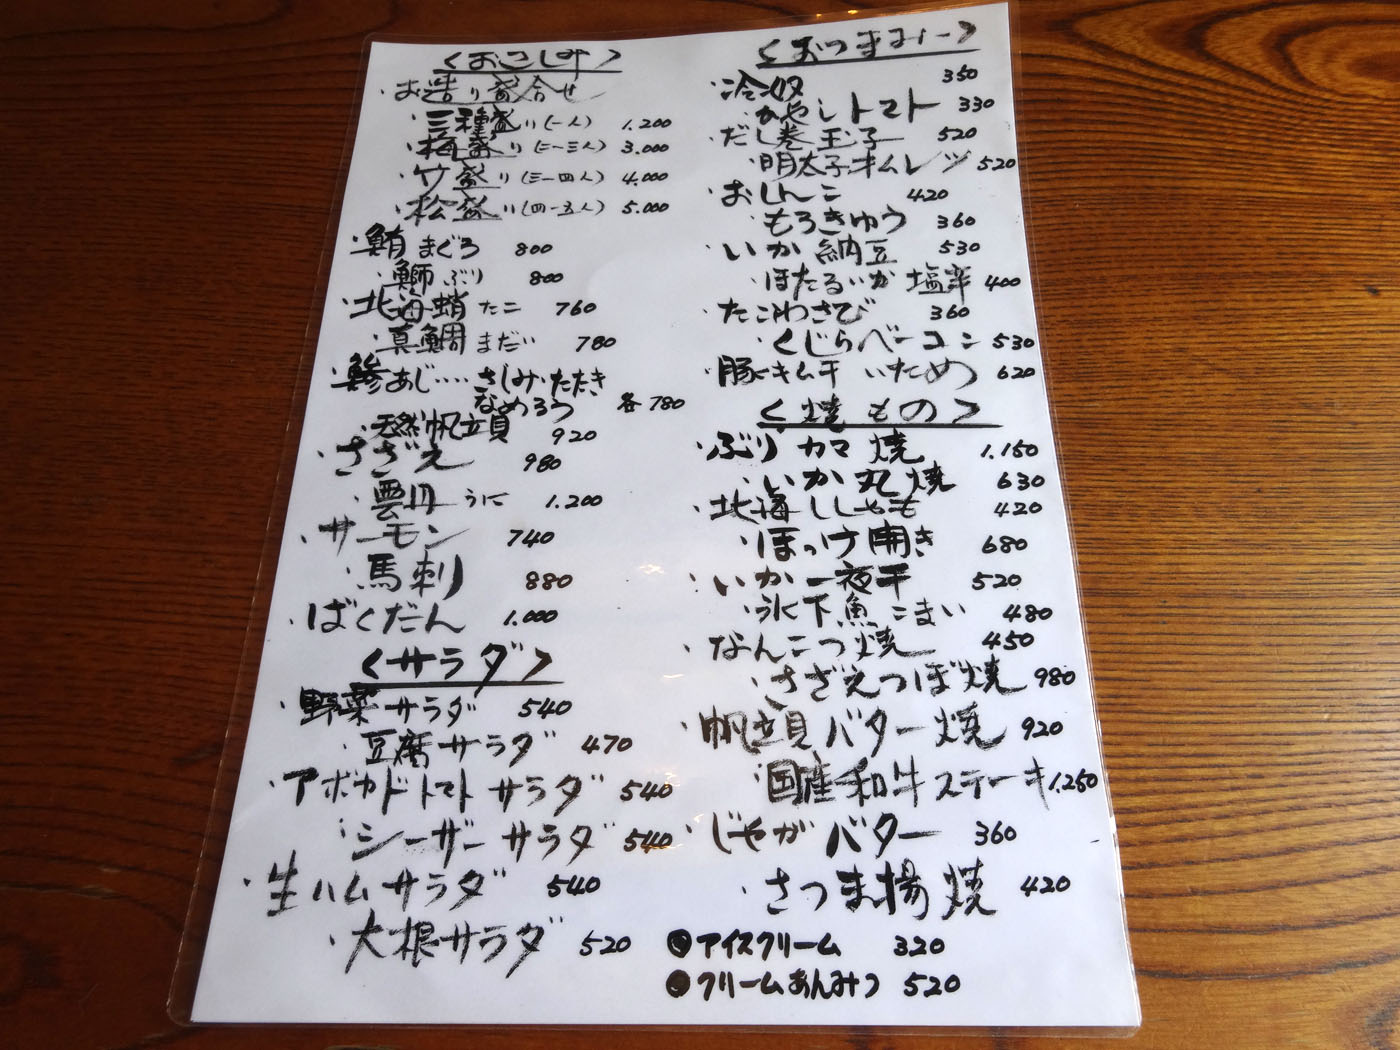 〈おさしみ〉
・お造り盛合せ
・三種盛り(一人) 1.200
・梅盛り(二〜三人) 3.000
・竹盛り(三〜四人) 4.000
・松盛り(四〜五人) 5.000
・鮪 まぐろ 800
・鰤 ぶり 800
・北海蛸 たこ 760
・真鯛 まだい 780
・鯵 あじ‥‥さしみ・たたき
なめろう 各780
・天然帆立貝 920
・さざえ 980
・雲丹 うに 1.200
・サーモン 740
・馬刺 880
・ばくだん 1.000
〈サラダ〉
・野菜サラダ 540
・豆腐サラダ 470
・アボカドトマトサラダ 540
・シーザーサラダ 540
・生ハムサラダ 540
・大根サラダ 520
〈おつまみ〉
・冷奴 350
・ひやしトマト 330
・だし巻玉子 520
・明太子オムレツ 520
・おしんこ 420
・もろきゅう 360
・いか納豆 530
・ほたるいか塩辛 400
・たこわさび 360
・くじらベーコン 530
・豚キムチいため 620
〈焼もの〉
・ぶりカマ焼 1.150
・いか丸焼 630
・北海ししゃも 420
・ほっけ開き 680
・いか一夜干 520
・氷下魚 こまい 480
・なんこつ焼 450
・さざえつぼ焼 980
・帆立貝バター焼 920
・国産和牛ステーキ 1.250
・じゃがバター 360
・さつま揚焼 420
●アイスクリーム 320
●クリームあんみつ 520